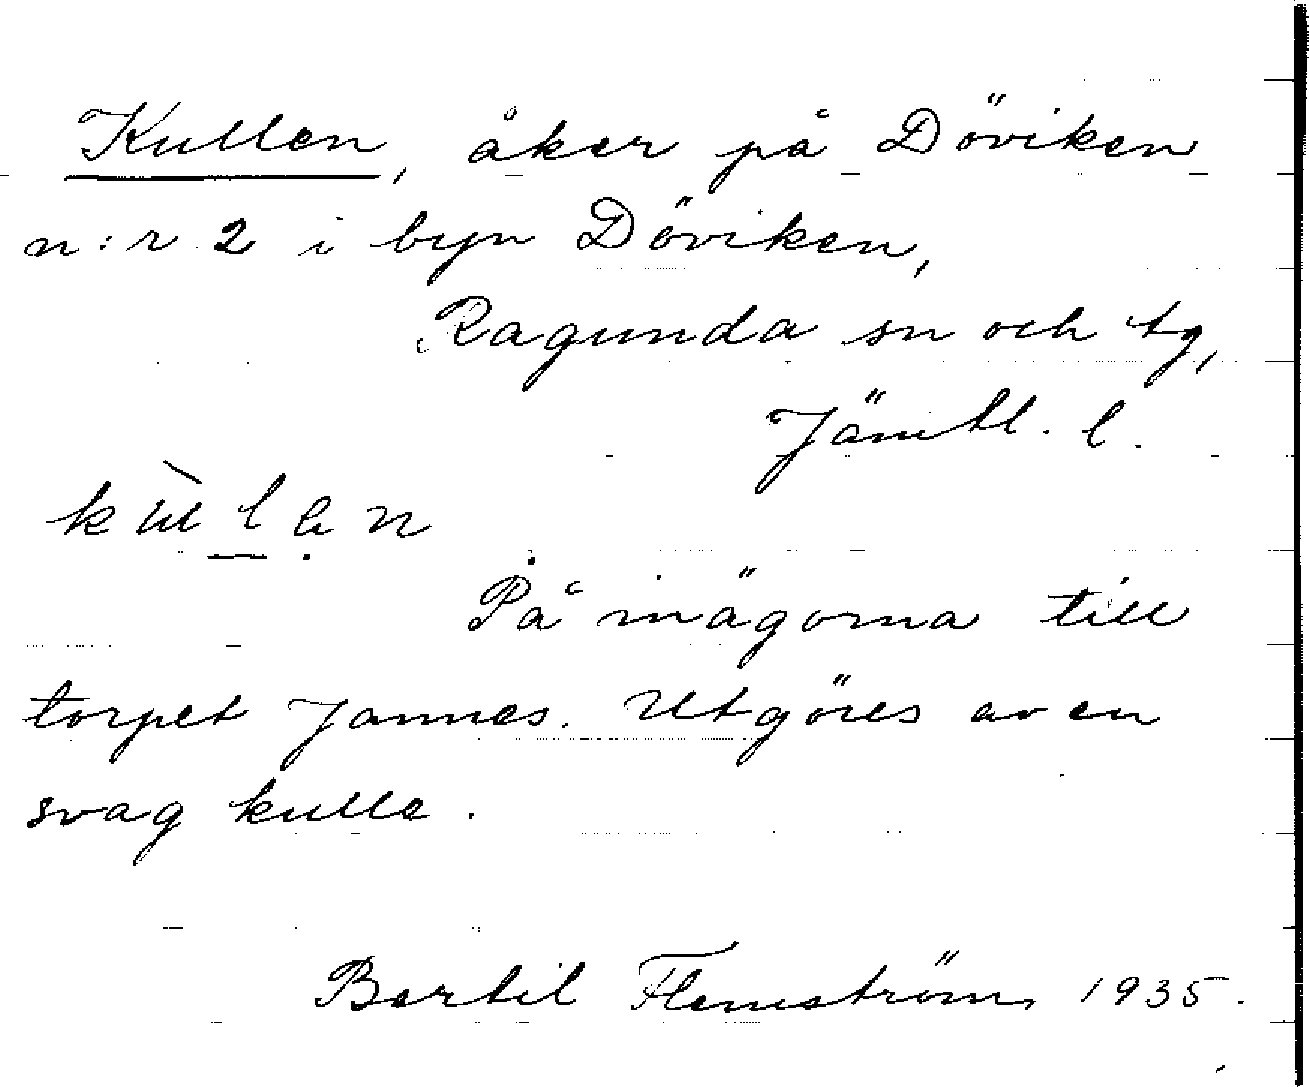 Kullen, åker på Döviken
n:r 2 i byn Döviken,
Ragunda sn och tg,
Jämtl. l.
På inägorna till
torpet Jannes. Utgöres av en
svag kulle.
Bertil Flemström 1935.